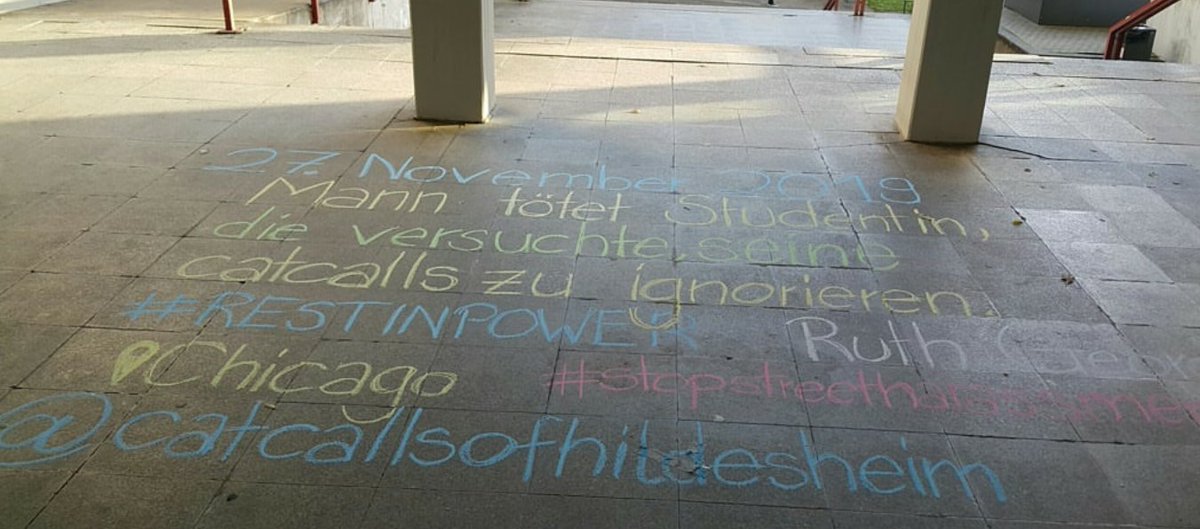 27. November 2019
Mann tötet Studentin,
die versuchte, seine
catcalls zu ignorieren.
#RESTINPOWER Ruth
Chicago #stopstreetharassment
@catcallsofhildesheim